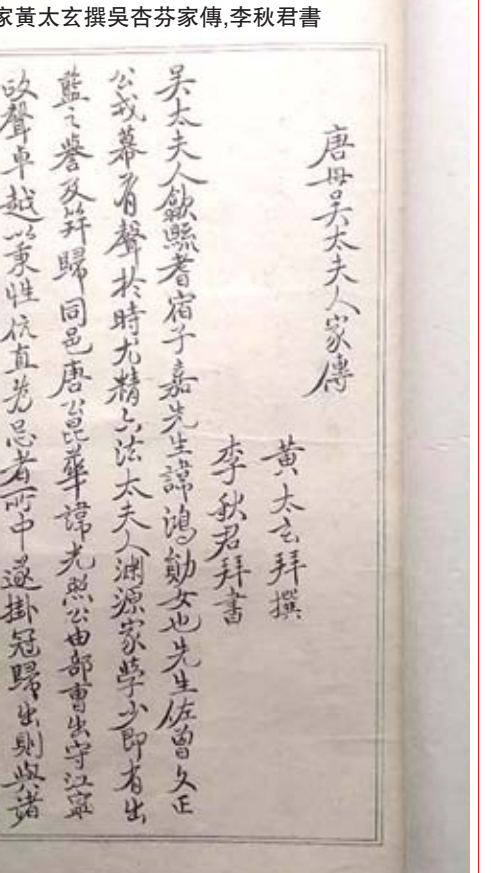 家黃太玄撰吳杏芬家傳,李秋君書
唐母吳太夫人家傳
黃太玄拜撰
李秋君拜書
吴太夫人歙縣耆宿子嘉先生諱鴻勛女也先生佐曾文正
公戎幕有聲於時尤精六法太夫人渊源家學少即有出
藍之譽及笄歸同邑唐公昆華諱光照公由部曹出守江寧
政聲卓越以秉性伉直为忌者所中遂掛冠歸出則與諸